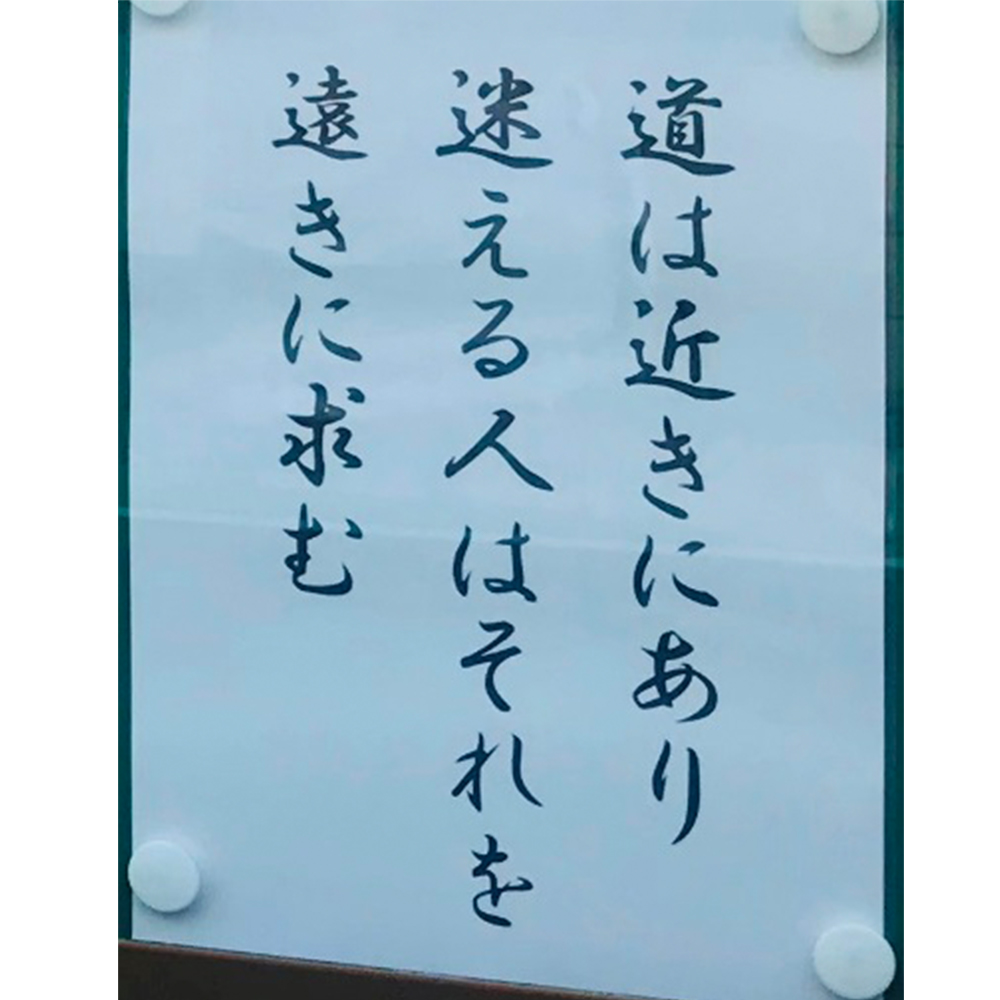 道は近きにあり
迷える人はそれを
遠きに求む